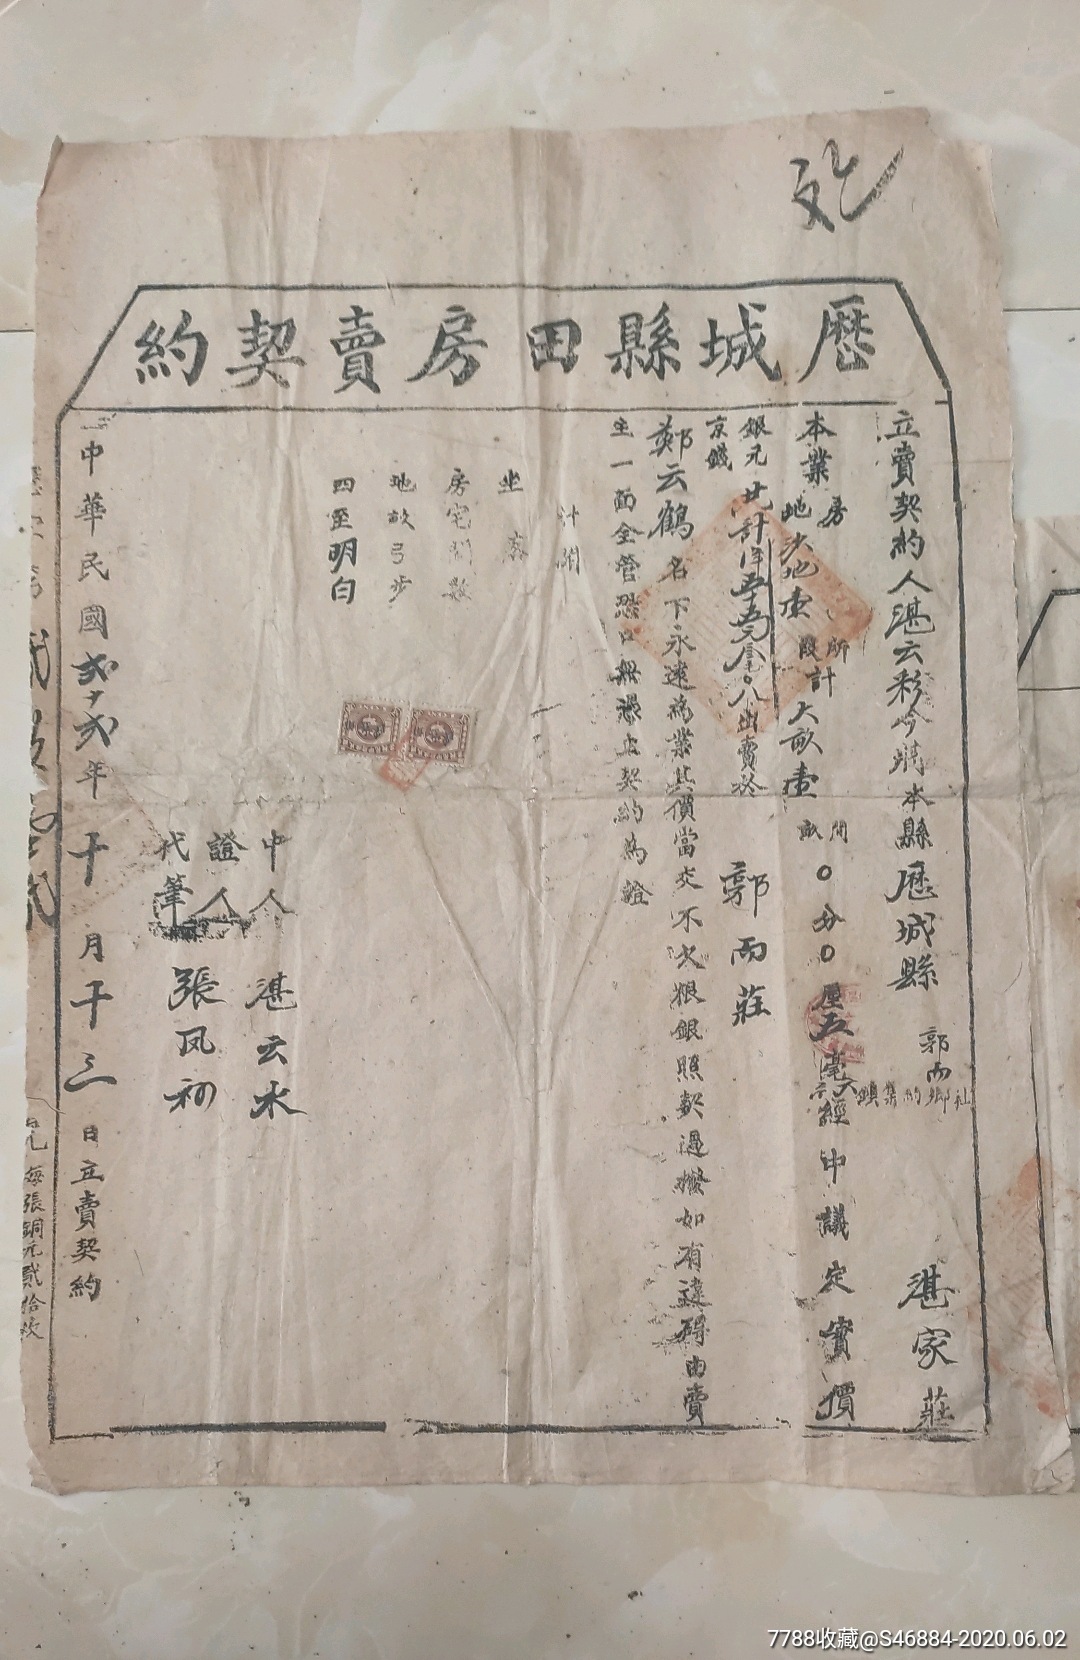 訖
歷城縣田房賣契約
立賣契約人湛云彩今將本縣歷城縣 郭而 社鄉約集鎮 湛家莊
本業房地沙地壹所段計大畝壹間畝〇分〇厘五毫六 經中議定實價
銀元京錢 出賣於 郭而莊
鄭云鶴名下永遠為業其價當交不欠粮銀照契過撥如有違碍由賣
主一面全管恐口無憑立契約為證
計開
坐落
房宅間數
地畝弓步
四至明白
中人 湛云水
證人
代筆 張凤初
中華民國弍十弍年十月十三日立賣契約
每張銅元貳拾枚
7788收藏@S46884-2020.06.02